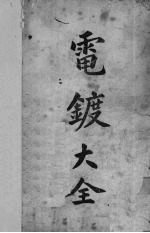 電鍍大全